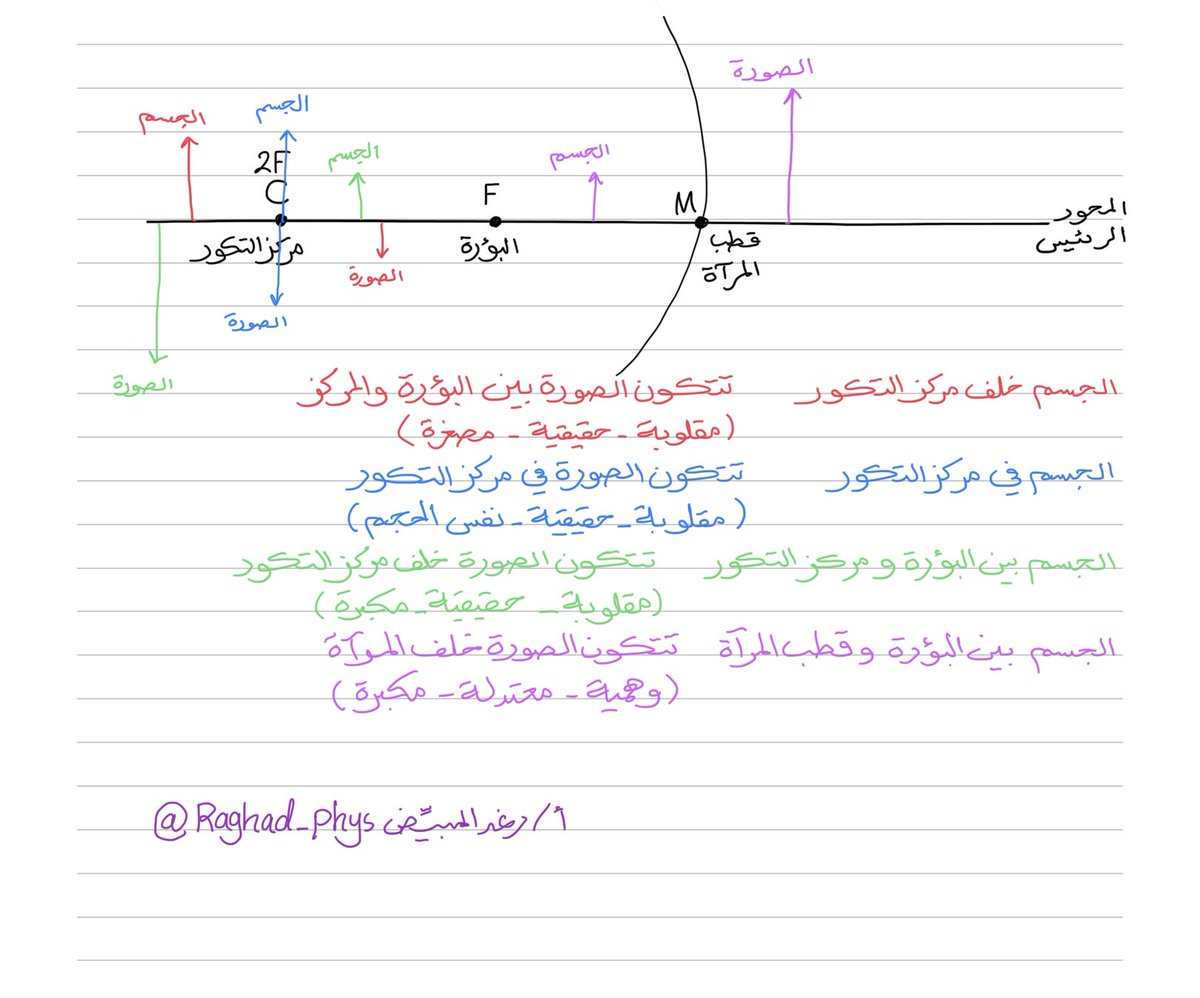 الصورة
الجسم
الجسم
2F
C
الجسم
F
الجسم
M
المحور
الرئيسي
مركز التكور
البؤرة
قطب
المرآة
الصورة
الصورة
الصورة
الجسم خلف مركز التكور تتكون الصورة بين البؤرة والمركز
(مقلوبة - حقيقية - مصغرة)
الجسم في مركز التكور تتكون الصورة في مركز التكور
(مقلوبة - حقيقية - نفس الحجم)
الجسم بين البؤرة و مركز التكور تتكون الصورة خلف مركز التكور
(مقلوبة - حقيقية - مكبرة)
الجسم بين البؤرة وقطب المرآة تتكون الصورة خلف المرآة
(وهمية - معتدلة - مكبرة)
أ/رغد المبيّض @Raghad_Phys